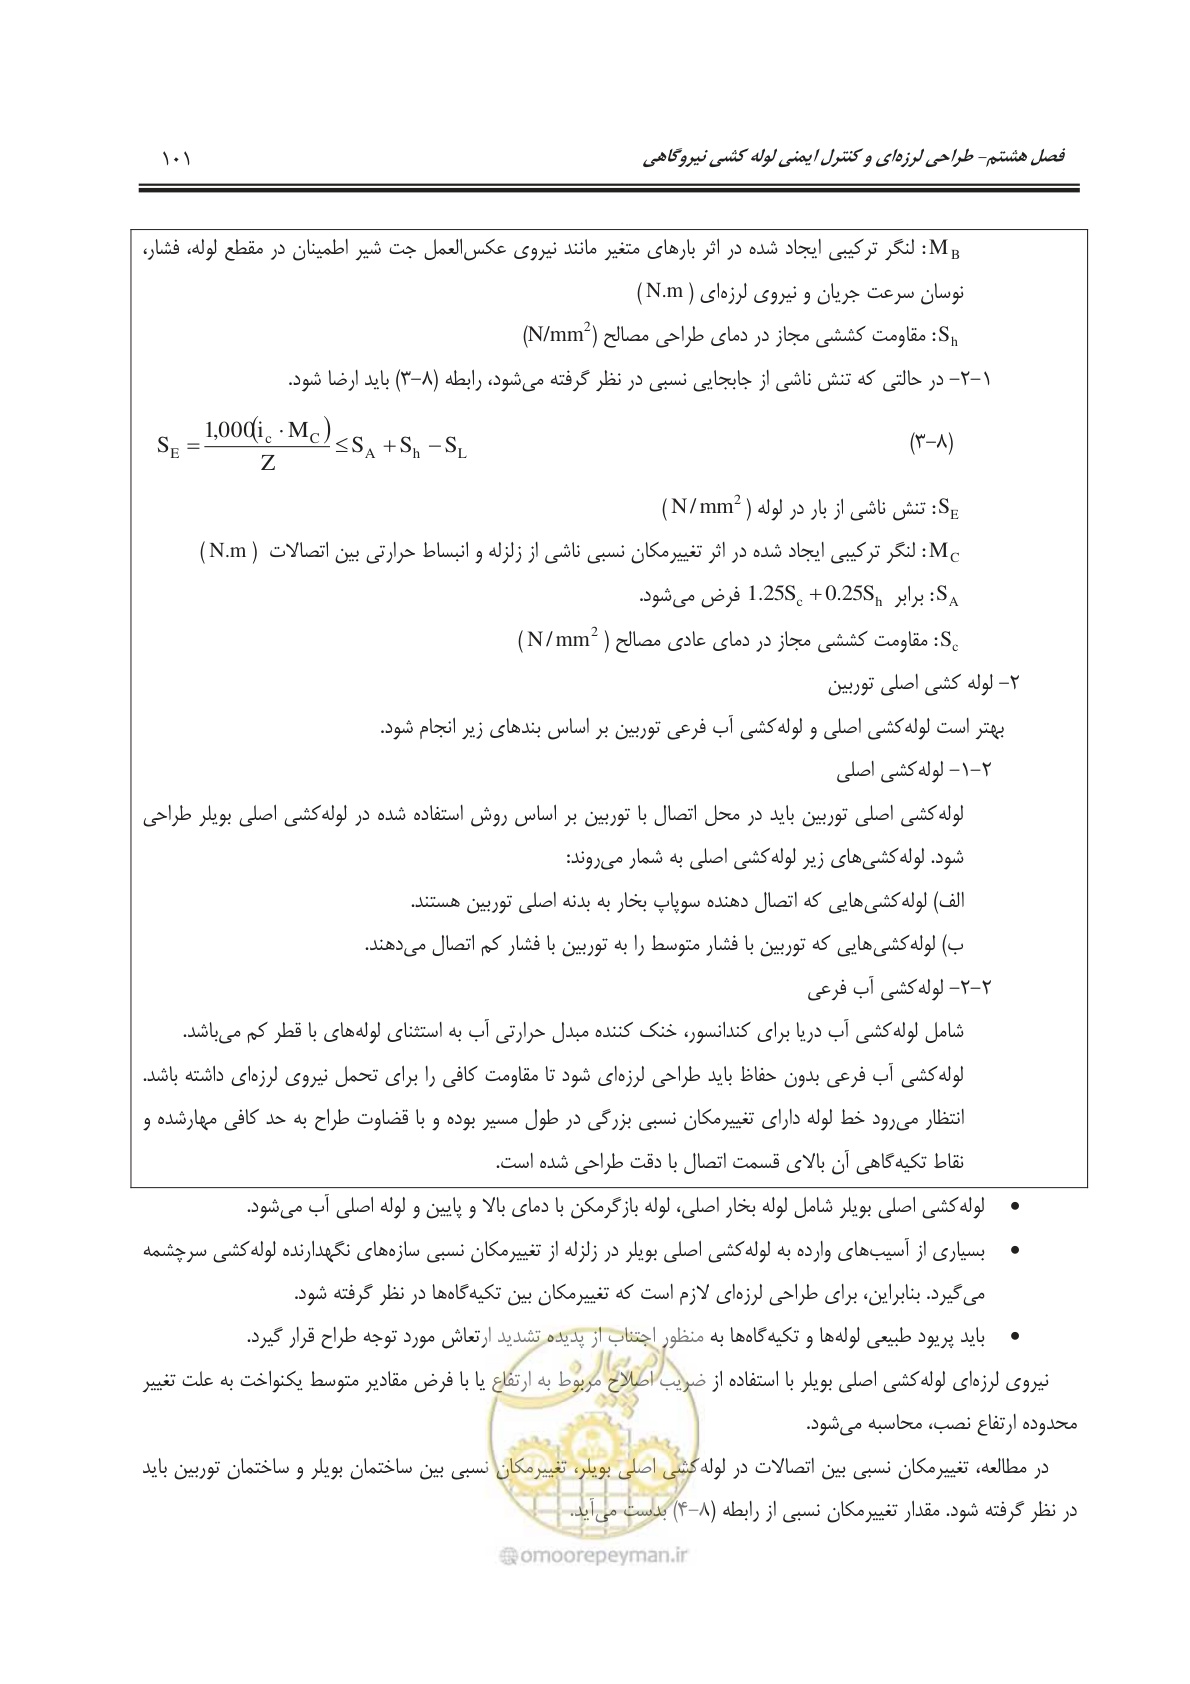 فصل هشتم- طراحی لرزه‌ای و کنترل ایمنی لوله کشی نیروگاهی ۱۰۱
M_B: لنگر ترکیبی ایجاد شده در اثر بارهای متغیر مانند نیروی عکس‌العمل جت شیر اطمینان در مقطع لوله، فشار،
نوسان سرعت جریان و نیروی لرزه‌ای ( N.m )
S_h: مقاومت کششی مجاز در دمای طراحی مصالح (N/mm²)
۱-۲- در حالتی که تنش ناشی از جابجایی نسبی در نظر گرفته می‌شود، رابطه (۸-۳) باید ارضا شود.
S_E = 1,000(i_c · M_C) / Z ≤ S_A + S_h − S_L (۸-۳)
S_E: تنش ناشی از بار در لوله ( N/mm² )
M_C: لنگر ترکیبی ایجاد شده در اثر تغییرمکان نسبی ناشی از زلزله و انبساط حرارتی بین اتصالات ( N.m )
S_A: برابر 1.25S_c + 0.25S_h فرض می‌شود.
S_c: مقاومت کششی مجاز در دمای عادی مصالح ( N/mm² )
۲- لوله کشی اصلی توربین
بهتر است لوله‌کشی اصلی و لوله‌کشی آب فرعی توربین بر اساس بندهای زیر انجام شود.
۲-۱- لوله‌کشی اصلی
لوله‌کشی اصلی توربین باید در محل اتصال با توربین بر اساس روش استفاده شده در لوله‌کشی اصلی بویلر طراحی
شود. لوله‌کشی‌های زیر لوله‌کشی اصلی به شمار می‌روند:
الف) لوله‌کشی‌هایی که اتصال دهنده سوپاپ بخار به بدنه اصلی توربین هستند.
ب) لوله‌کشی‌هایی که توربین با فشار متوسط را به توربین با فشار کم اتصال می‌دهند.
۲-۲- لوله‌کشی آب فرعی
شامل لوله‌کشی آب دریا برای کندانسور، خنک کننده مبدل حرارتی آب به استثنای لوله‌های با قطر کم می‌باشد.
لوله‌کشی آب فرعی بدون حفاظ باید طراحی لرزه‌ای شود تا مقاومت کافی را برای تحمل نیروی لرزه‌ای داشته باشد.
انتظار می‌رود خط لوله دارای تغییرمکان نسبی بزرگی در طول مسیر بوده و با قضاوت طراح به حد کافی مهارشده و
نقاط تکیه‌گاهی آن بالای قسمت اتصال با دقت طراحی شده است.
• لوله‌کشی اصلی بویلر شامل لوله بخار اصلی، لوله بازگرمکن با دمای بالا و پایین و لوله اصلی آب می‌شود.
• بسیاری از آسیب‌های وارده به لوله‌کشی اصلی بویلر در زلزله از تغییرمکان نسبی سازه‌های نگهدارنده لوله‌کشی سرچشمه
می‌گیرد. بنابراین، برای طراحی لرزه‌ای لازم است که تغییرمکان بین تکیه‌گاه‌ها در نظر گرفته شود.
• باید پریود طبیعی لوله‌ها و تکیه‌گاه‌ها به منظور اجتناب از پدیده تشدید ارتعاش مورد توجه طراح قرار گیرد.
نیروی لرزه‌ای لوله‌کشی اصلی بویلر با استفاده از ضریب اصلاح مربوط به ارتفاع یا با فرض مقادیر متوسط یکنواخت به علت تغییر
محدوده ارتفاع نصب، محاسبه می‌شود.
در مطالعه، تغییرمکان نسبی بین اتصالات در لوله‌کشی اصلی بویلر، تغییرمکان نسبی بین ساختمان بویلر و ساختمان توربین باید
در نظر گرفته شود. مقدار تغییرمکان نسبی از رابطه (۸-۴) بدست می‌آید.
امور پیمان
@omoorepeyman.ir